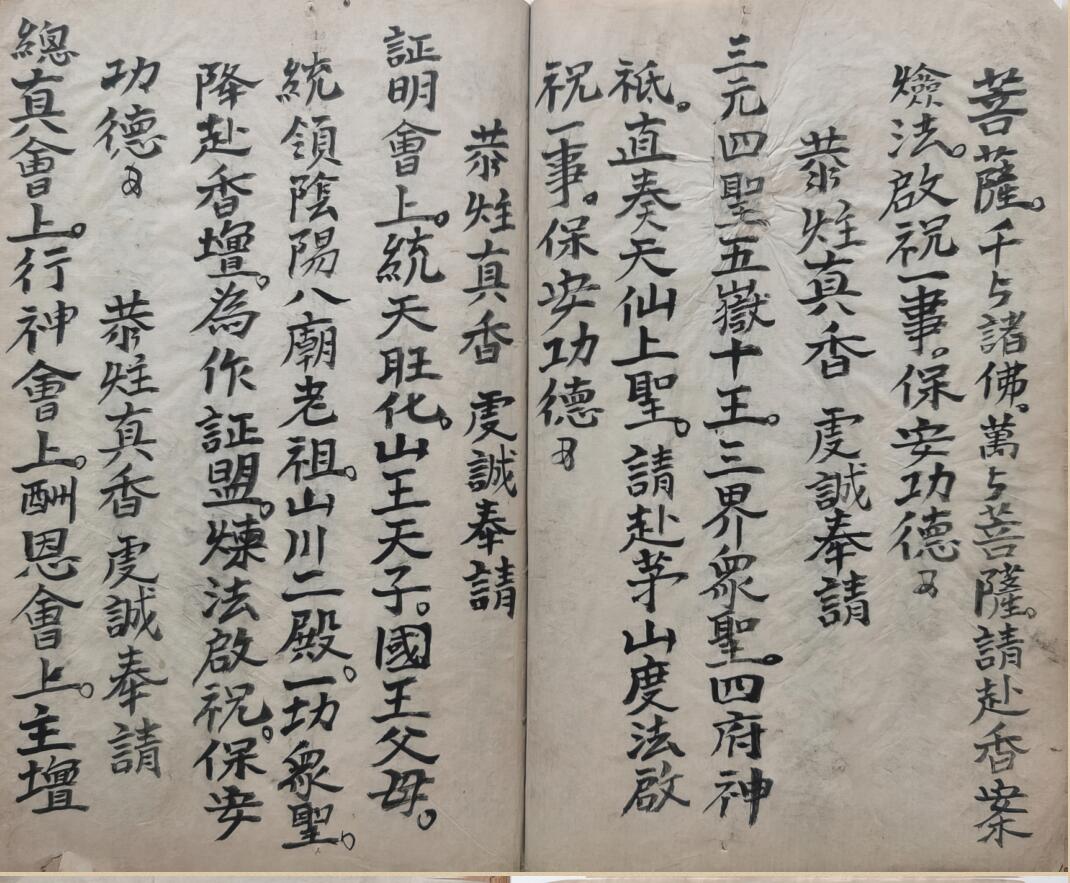 菩薩。千々諸佛。萬々菩薩。請赴香案
燶法。啟祝一事。保安功德又
恭炷真香 虔誠奉請
三元四聖五嶽十王。三界衆聖。四府神
祇。直奏天仙上聖。請赴茅山度法啟
祝一事。保安功德又
恭炷真香 虔誠奉請
証明會上。統天旺化。山王天子。國王父母。
統領陰陽八廟老祖。山川二殿。一功衆聖。
降赴香壇。為作証盟。煉法啟祝。保安
功德又 恭炷真香 虔誠奉請
總真會上。行神會上。酬恩會上。主壇